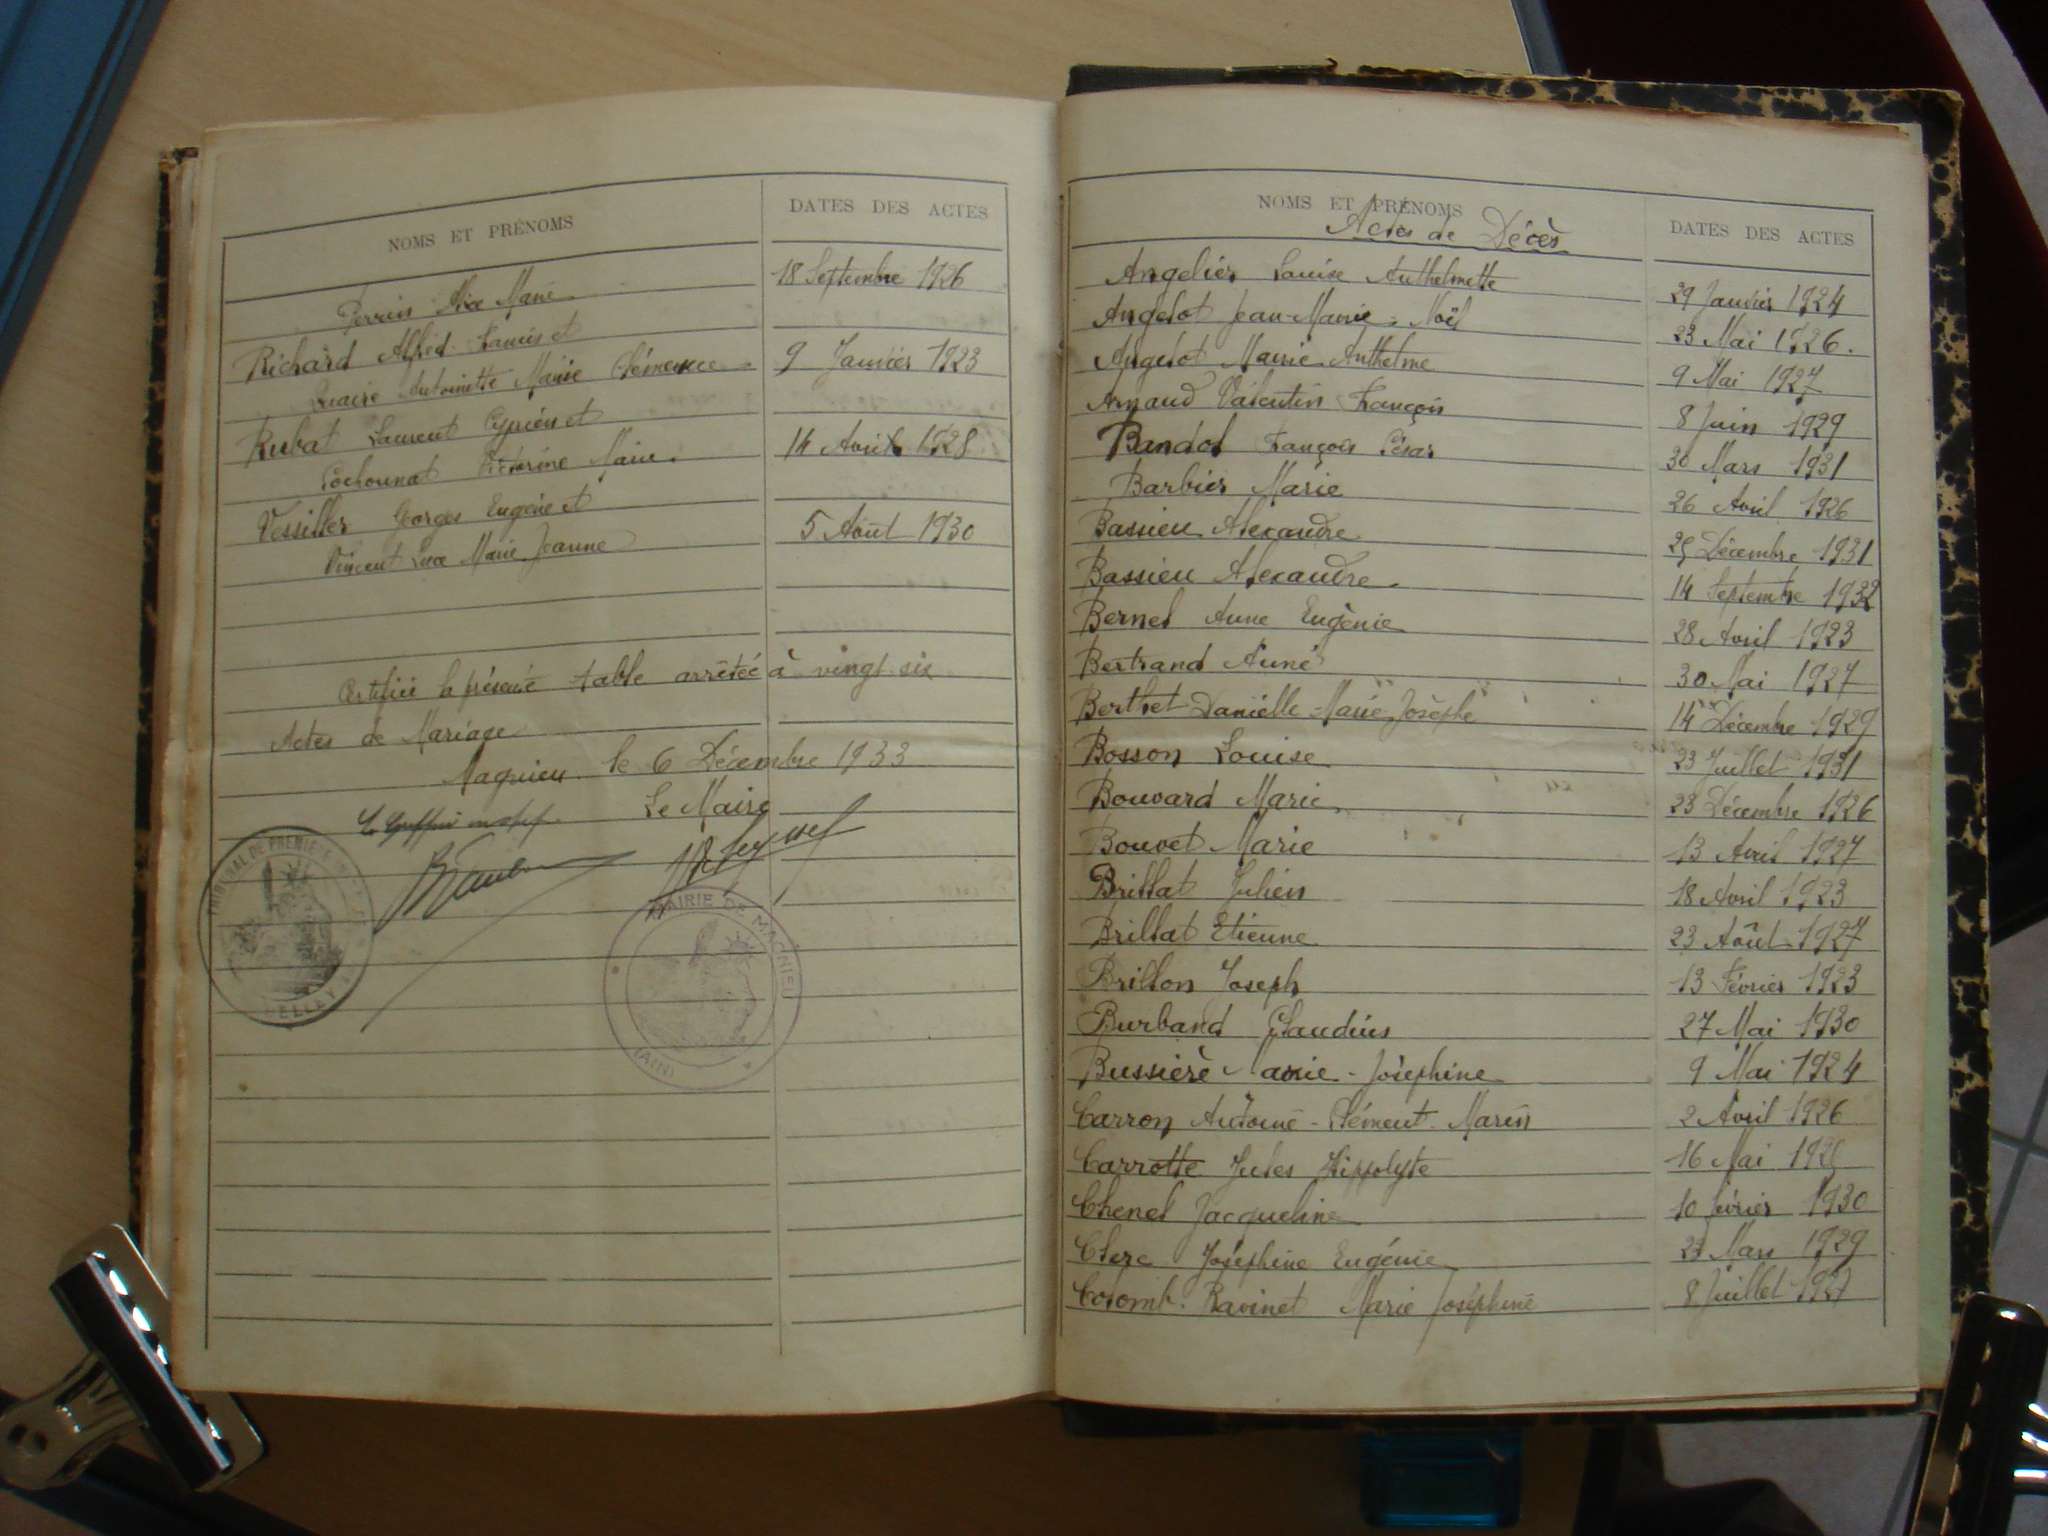 NOMS ET PRÉNOMS
DATES DES ACTES
Perrin Alice Marie
18 Septembre 1926
Richard Alfred Francis et
Antoinette Marie Clémence
9 Janvier 1923
Rubat Laurent Cyprien et
Victorine Marie
14 Avril 1928
Vessiller Georges Eugène et
Vincent Luce Marie Jeanne
5 Août 1930
Certifiée la présente table arrêtée à vingt six
Actes de Mariage
Magnieu le 6 Décembre 1933
Le Maire
Le Greffier en chef
TRIBUNAL DE PREMIÈRE INSTANCE
BELLEY
MAIRIE DE MAGNIEU
(AIN)
NOMS ET PRÉNOMS
DATES DES ACTES
Actes de Décès
Angelier Louise Anthelmette
29 Janvier 1924
Angelot Jean-Marie-Noël
23 Mai 1926.
Angelot Marie Anthelme
9 Mai 1927
Arnaud Valentin François
8 Juin 1929
Bandot François César
30 Mars 1931
Barbier Marie
26 Avril 1926
Bassieu Alexandre
25 Décembre 1931
Bassieu Alexandre.
14 Septembre 1932
Bernet Anne Eugènie
28 Avril 1923
Bertrand Aimé
30 Mai 1927
Berthet Danièlle-Marie-Josèphe
14 Décembre 1929
Bosson Louise
23 Juillet 1931
Bouvard Marie
23 Décembre 1926
Bouvet Marie
13 Avril 1927
Brillat Julien
18 Avril 1923
Brillat Etienne
23 Août 1927
Brillon Joseph
13 Février 1923
Burband Claudius
27 Mai 1930
Bussière Marie-Joséphine
9 Mai 1924
Carron Antoine-Clément-Marin
2 Avril 1926
Carrotte Jules Hippolyte
16 Mai
Chenel Jacqueline
10 février 1930
Clerc Joséphine Eugénie
23 Mars 1929
Colomb-Ravinet Marie Joséphine
8 Juillet 1927